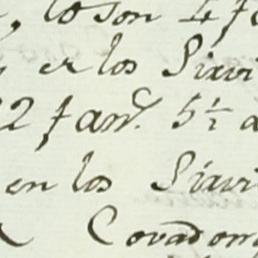 lo son 4 f
en los Sixvi
22 fan.ˢ 5½ a
en los Sixvi
Covadon